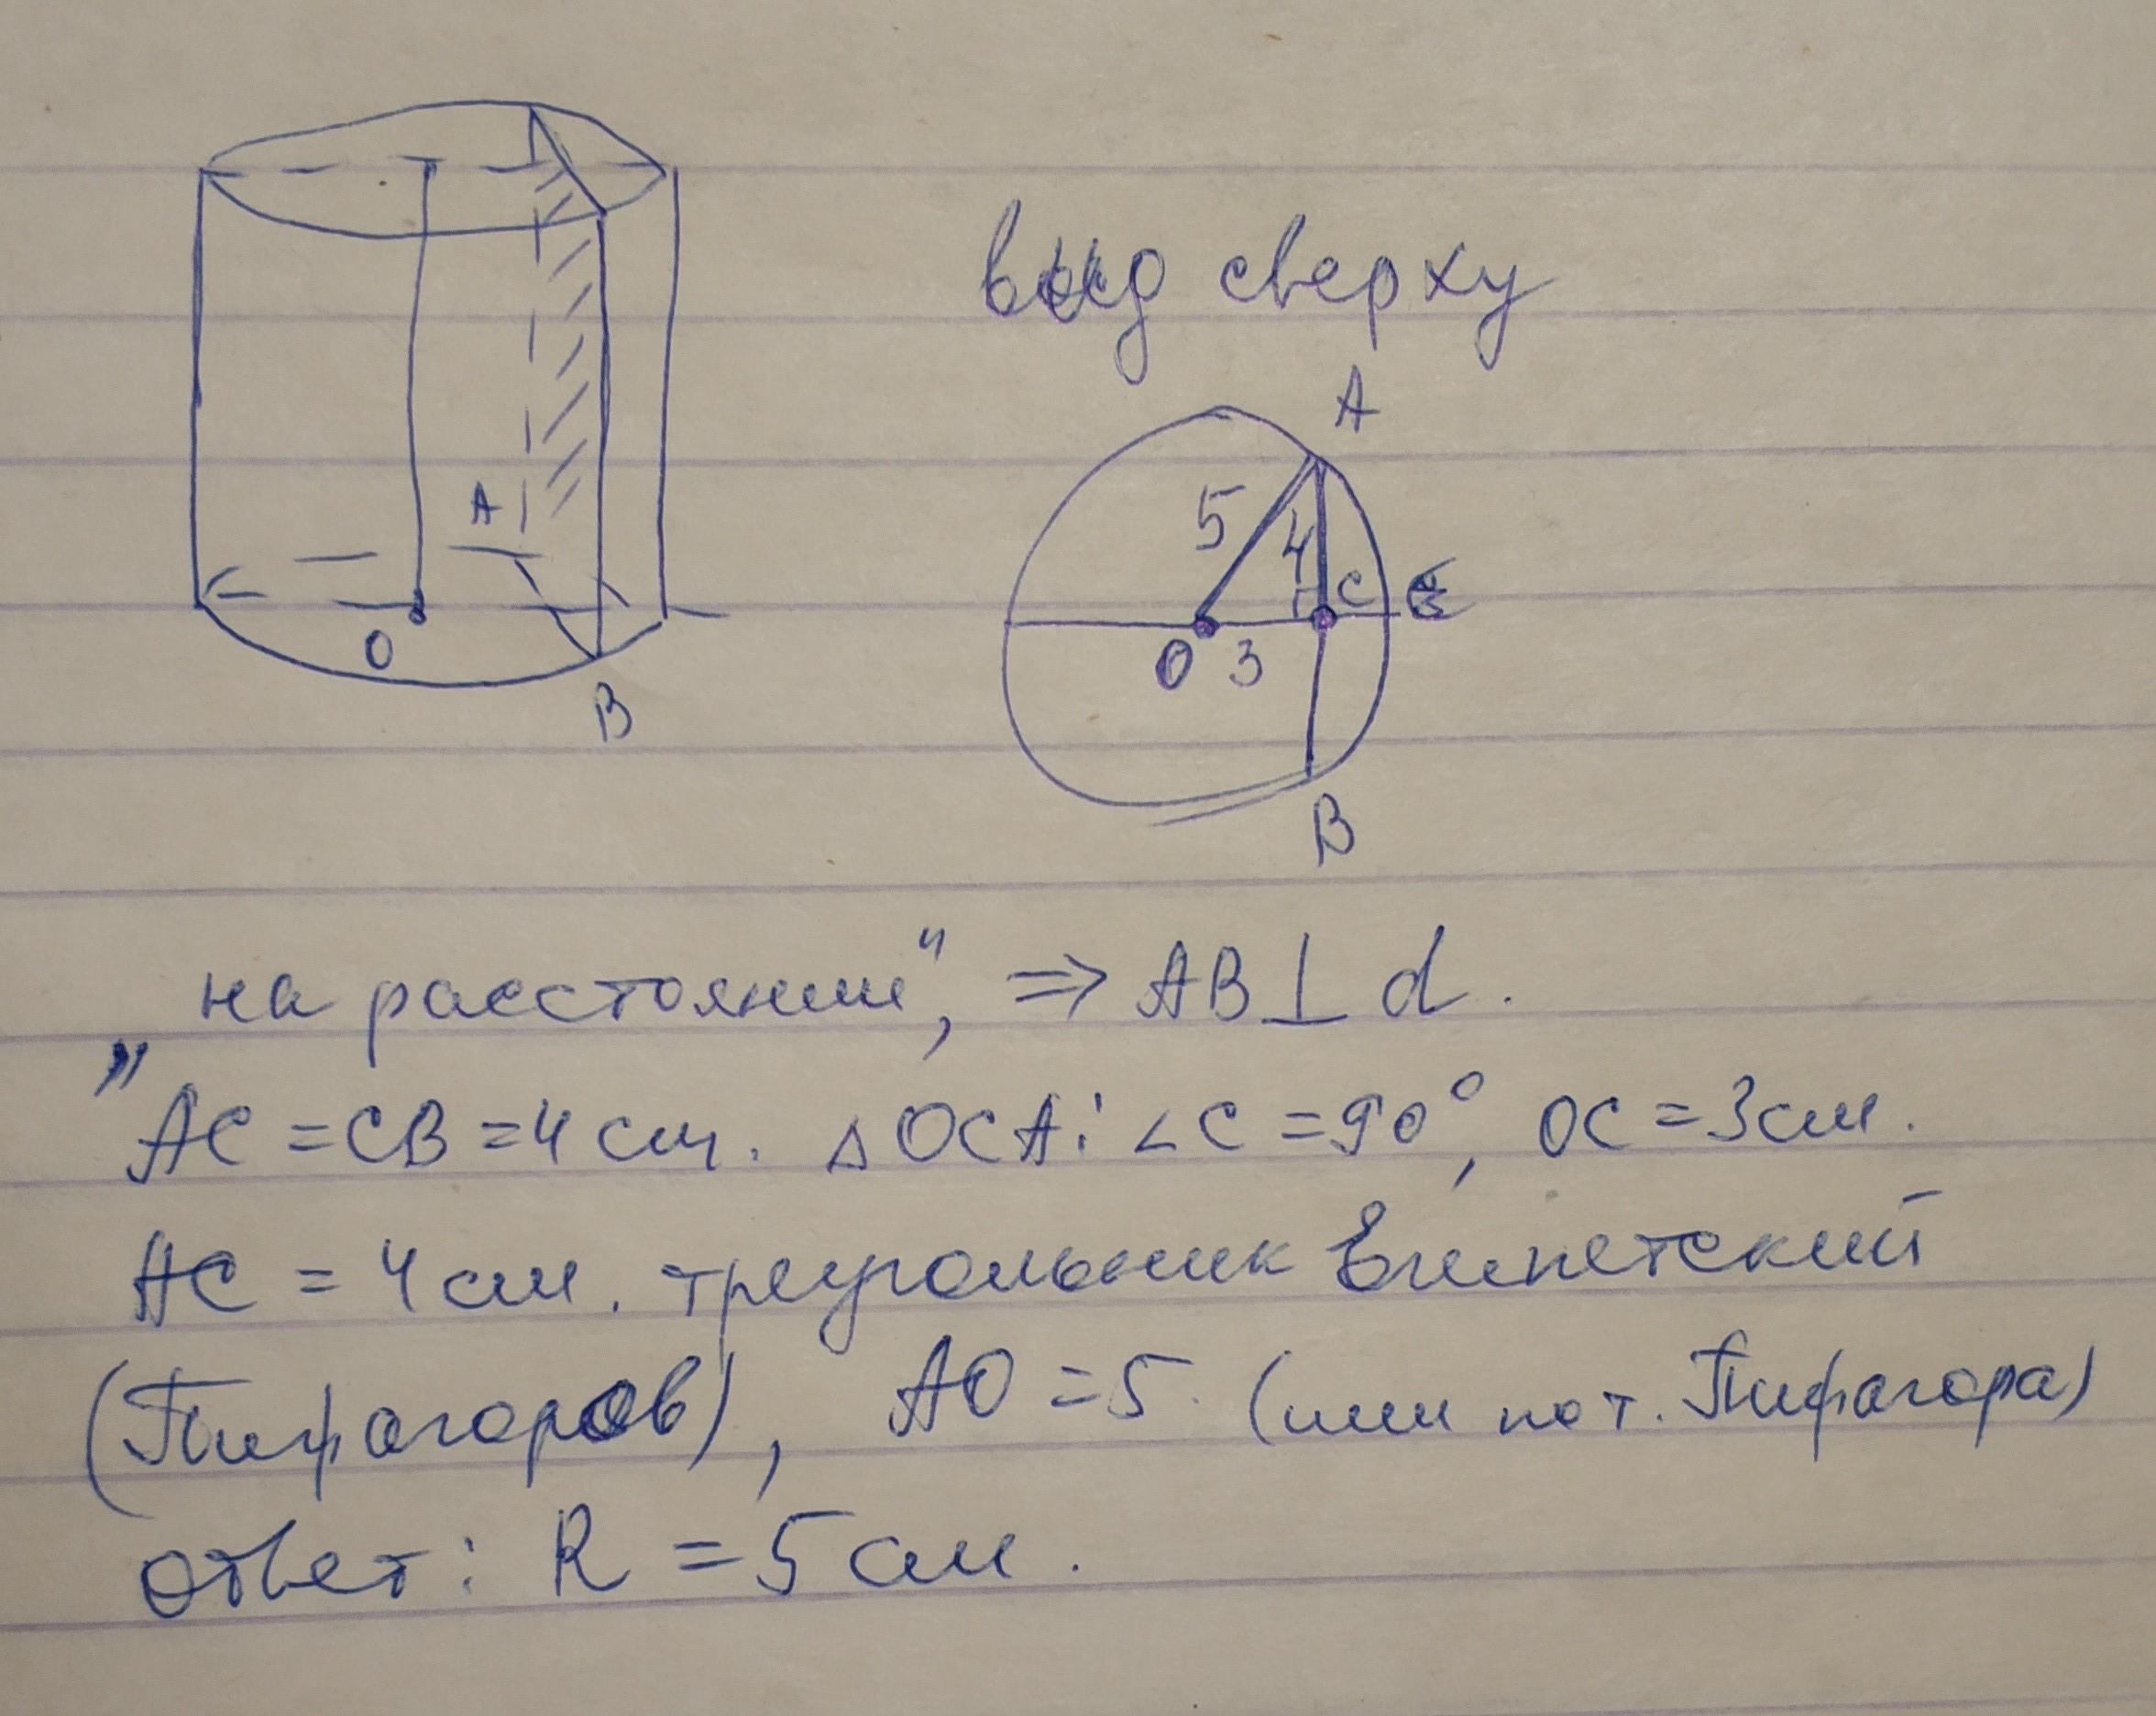 вид сверху
A
5
4
C
O 3
B
A
O
B
„на расстоянии", ⇒ AB⊥d.
AC = CB = 4 см. △OCA: ∠C = 90°, OC = 3 см.
AC = 4 см. треугольник Египетский
(Пифагоров), AO = 5. (или по т. Пифагора)
ответ: R = 5 см.